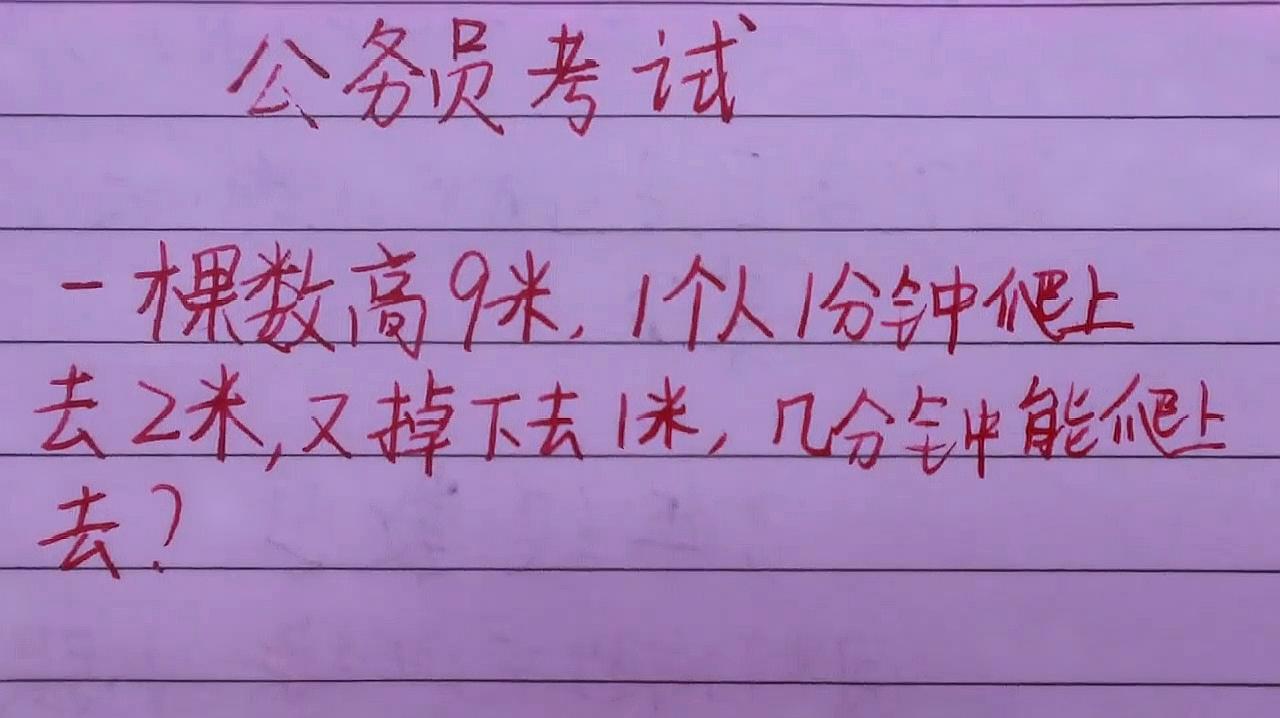 公务员考试
一棵数高9米,1个人1分钟爬上
去2米,又掉下去1米,几分钟能爬上
去?